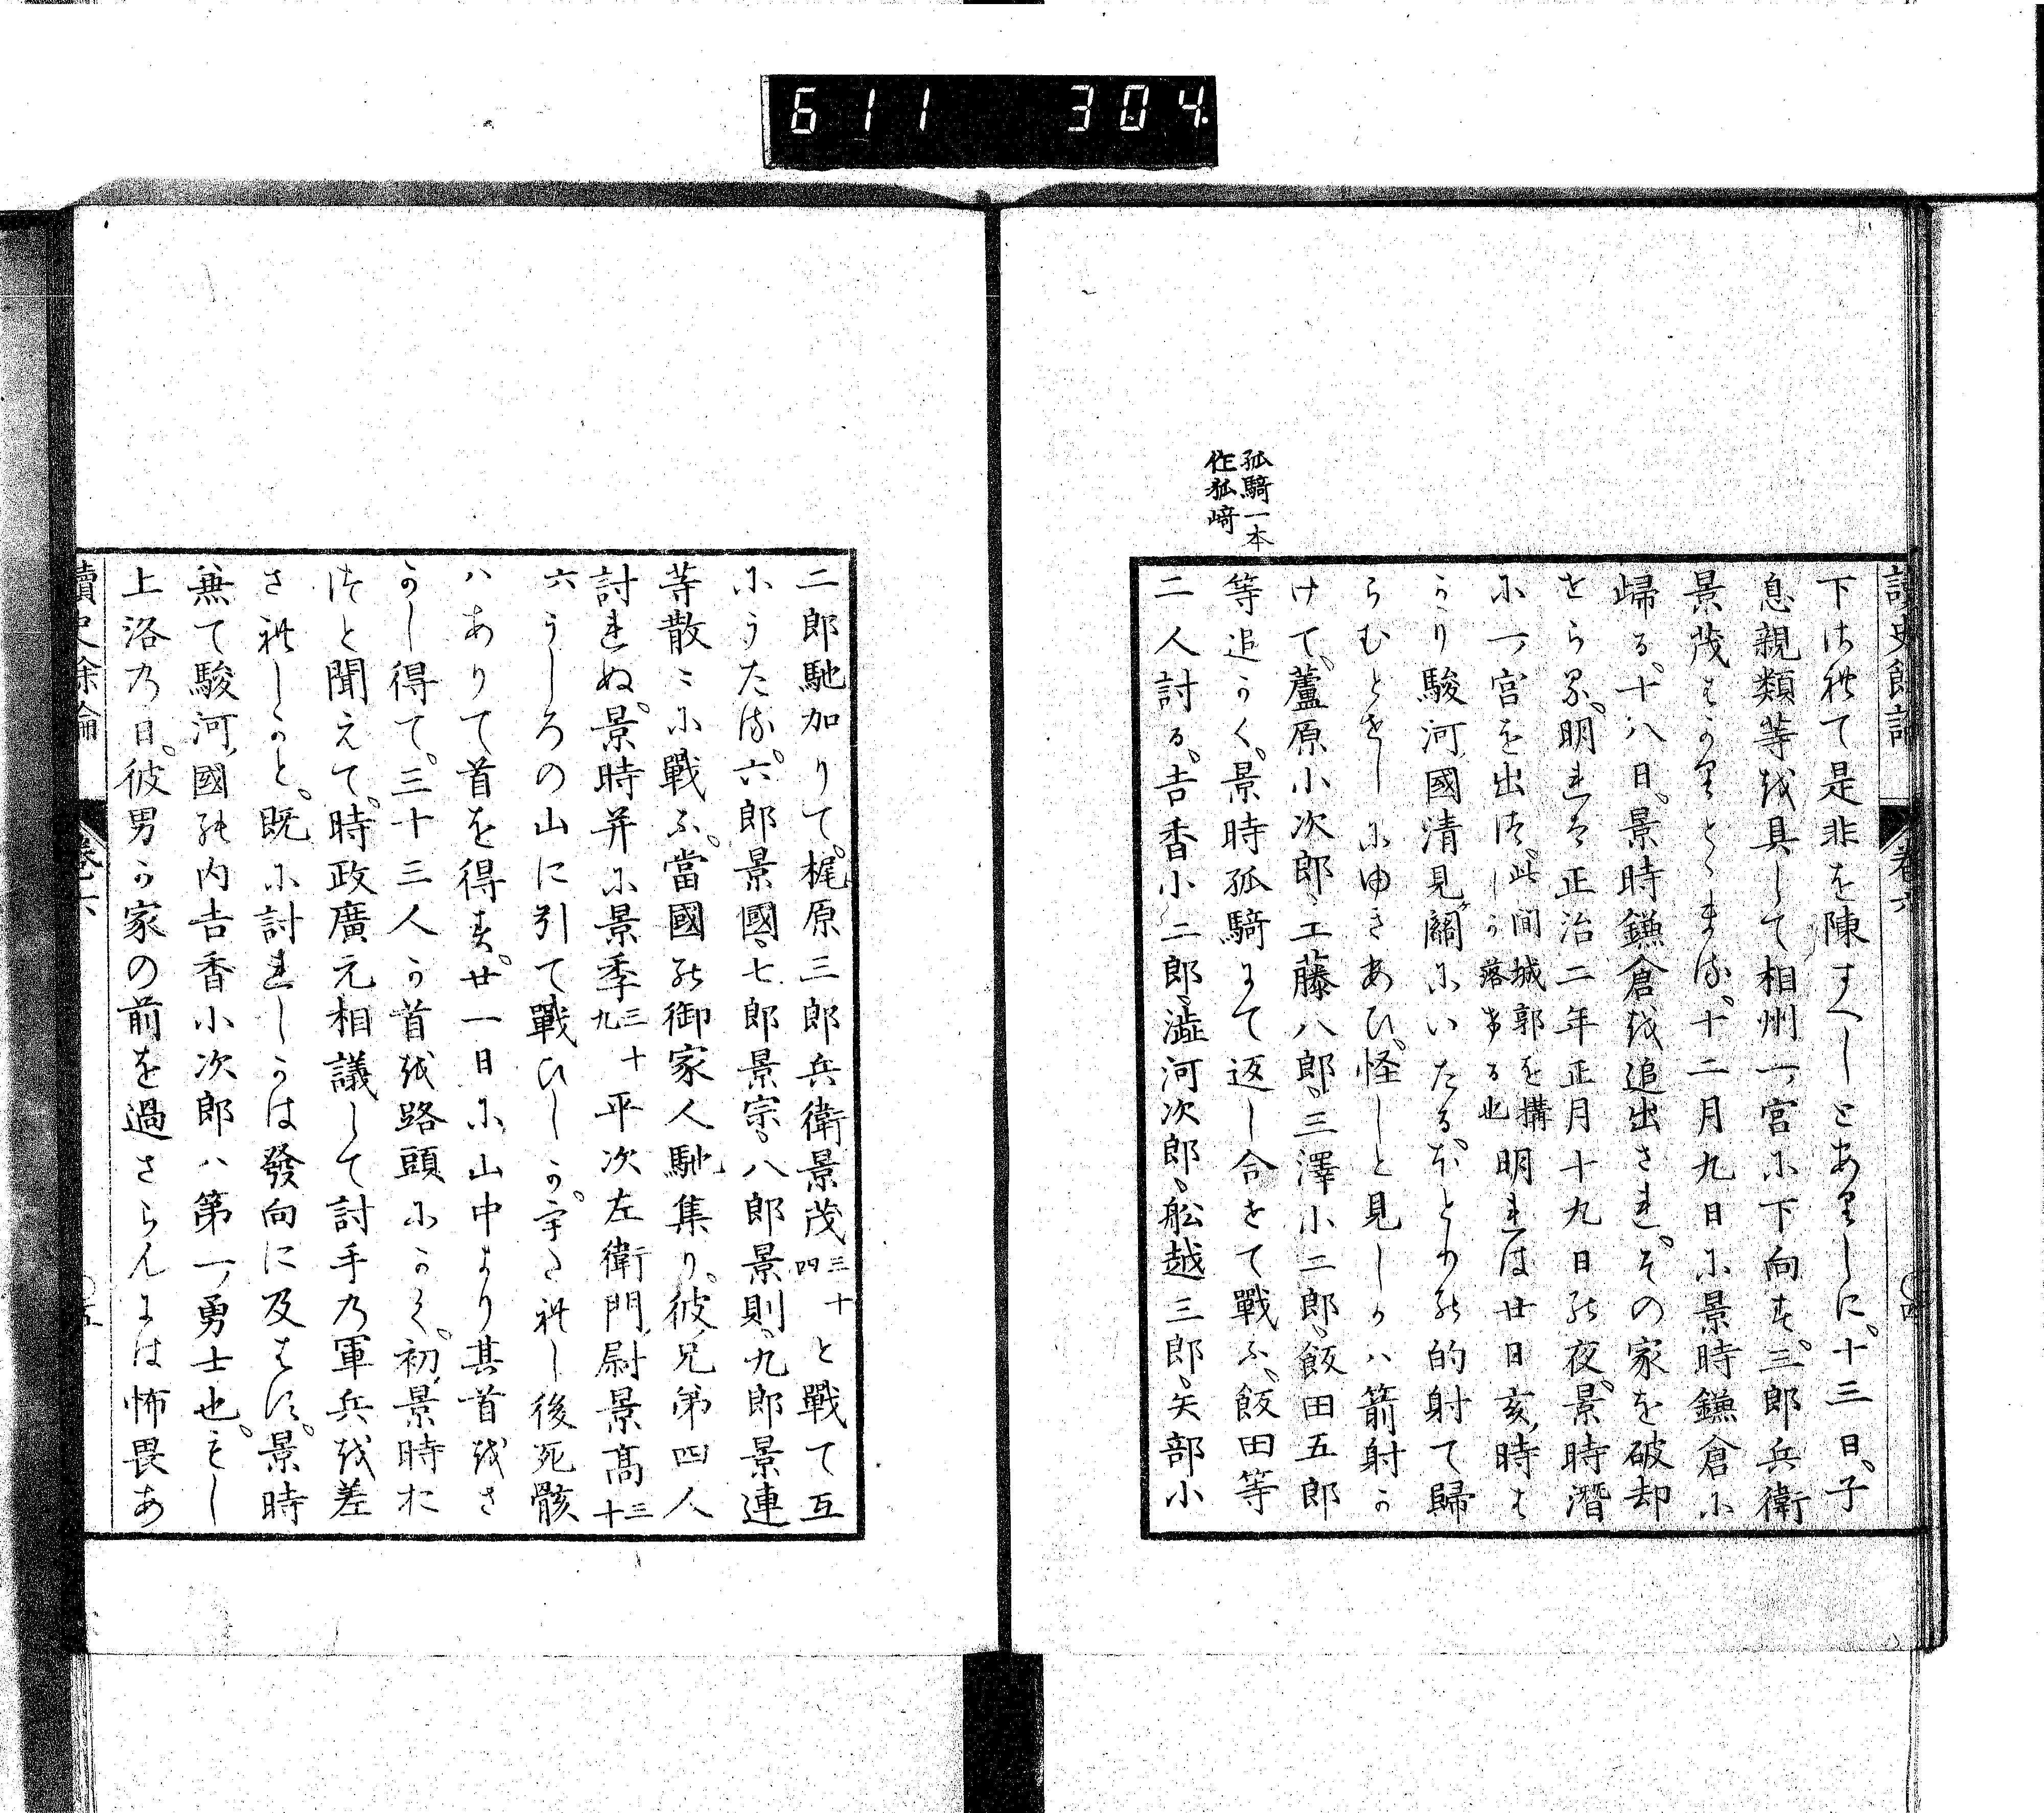 611 304
讀史餘論 卷六 〇四
下され て是非を陳すへしとありしに。十三日。子
息親類等を具して相州一ノ宮に下向す。三郎兵衛
景茂はかりとゝまる。十二月九日に景時鎌倉に
歸る。十八日。景時鎌倉を追出され。その家を破却
せらる。明れは正治二年正月十九日の夜。景時潛
に一ノ宮を出つ。此間城郭を構しか落せる也 明れは廿日亥ノ時は
かり駿河ノ國清見ヶ關にいたるほとの的射て歸
らむとせしにゆきあひ。怪しと見しかハ箭射か
けて。蘆原小次郎、工藤八郎、三澤小二郎、飯田五郎
等追かく。景時孤騎まて返し合せて戰ふ。飯田等
二人討る。吉香小二郎、澁河次郎、舩越三郎、矢部小
孤騎一本
作狐﨑
二郎馳加りて。梶原三郎兵衛景茂三十四と戰て互
にうたる。六郎景國、七郎景宗、八郎景則、九郎景連
等散々に戰ふ。當國の御家人馳集り。彼ノ兄弟四人
討れぬ。景時并に景季三十九平次左衛門ノ尉景髙三十
六うしろの山に引て戰ひしか。字され し後死骸
ハありて首を得す。廿一日に山中より其首をさ
かし得て。三十三人か首を路頭にかく。初ノ景時お
つと聞えて。時政廣元相議して討手乃軍兵を差
され しかと。既に討れしかは發向に及はす。景時
兼て駿河ノ國の内吉香小次郎ハ第一ノ勇士也。もし
上洛乃日。彼男か家の前を過さらんには怖畏あ
讀史餘論 卷六 〇五